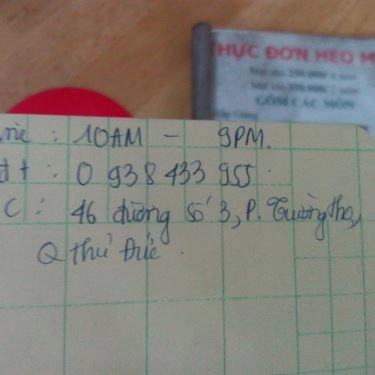 THỰC ĐƠN HEO M
GỒM CÁC MÓN
me : 10AM - 9PM.
dt : 0 938 433 955
C : 46 đường số 3, P. Trường Thọ,
Q thủ Đức.